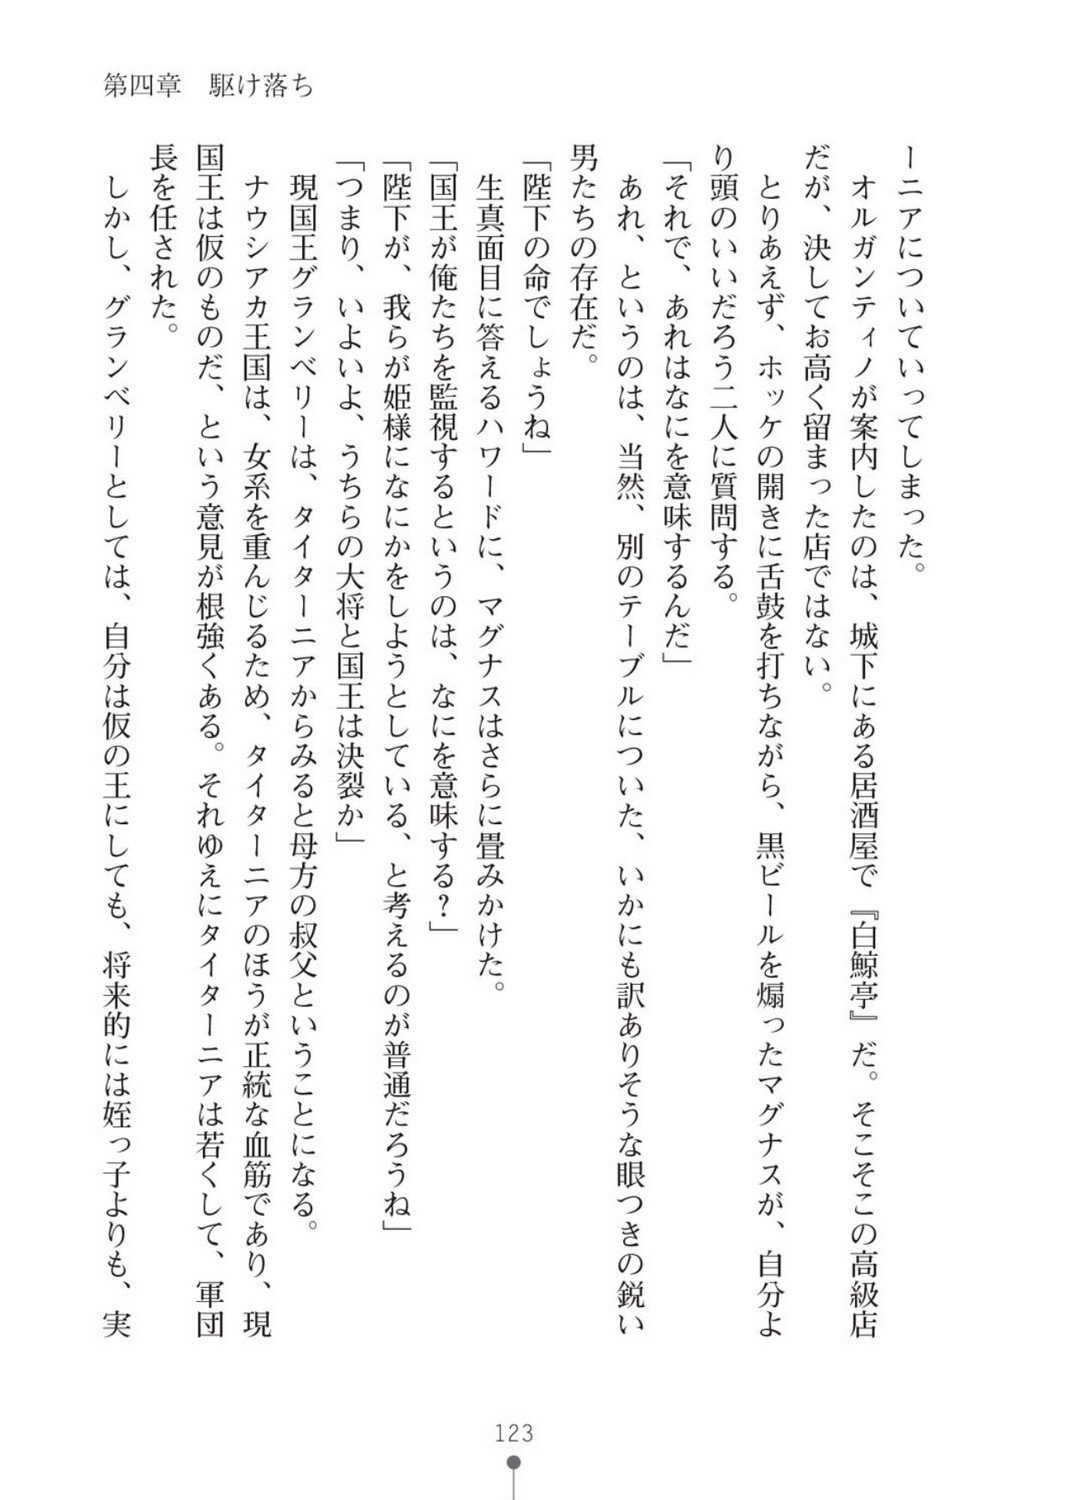 第四章　駆け落ち
ーニアについていってしまった。
　オルガンティノが案内したのは、城下にある居酒屋で『白鯨亭』だ。そこそこの高級店
だが、決してお高く留まった店ではない。
　とりあえず、ホッケの開きに舌鼓を打ちながら、黒ビールを煽ったマグナスが、自分よ
り頭のいいだろう二人に質問する。
「それで、あれはなにを意味するんだ」
　あれ、というのは、当然、別のテーブルについた、いかにも訳ありそうな眼つきの鋭い
男たちの存在だ。
「陛下の命でしょうね」
　生真面目に答えるハワードに、マグナスはさらに畳みかけた。
「国王が俺たちを監視するというのは、なにを意味する？」
「陛下が、我らが姫様になにかをしようとしている、と考えるのが普通だろうね」
「つまり、いよいよ、うちらの大将と国王は決裂か」
　現国王グランベリーは、タイターニアからみると母方の叔父ということになる。
　ナウシアカ王国は、女系を重んじるため、タイターニアのほうが正統な血筋であり、現
国王は仮のものだ、という意見が根強くある。それゆえにタイターニアは若くして、軍団
長を任された。
　しかし、グランベリーとしては、自分は仮の王にしても、将来的には姪っ子よりも、実
123